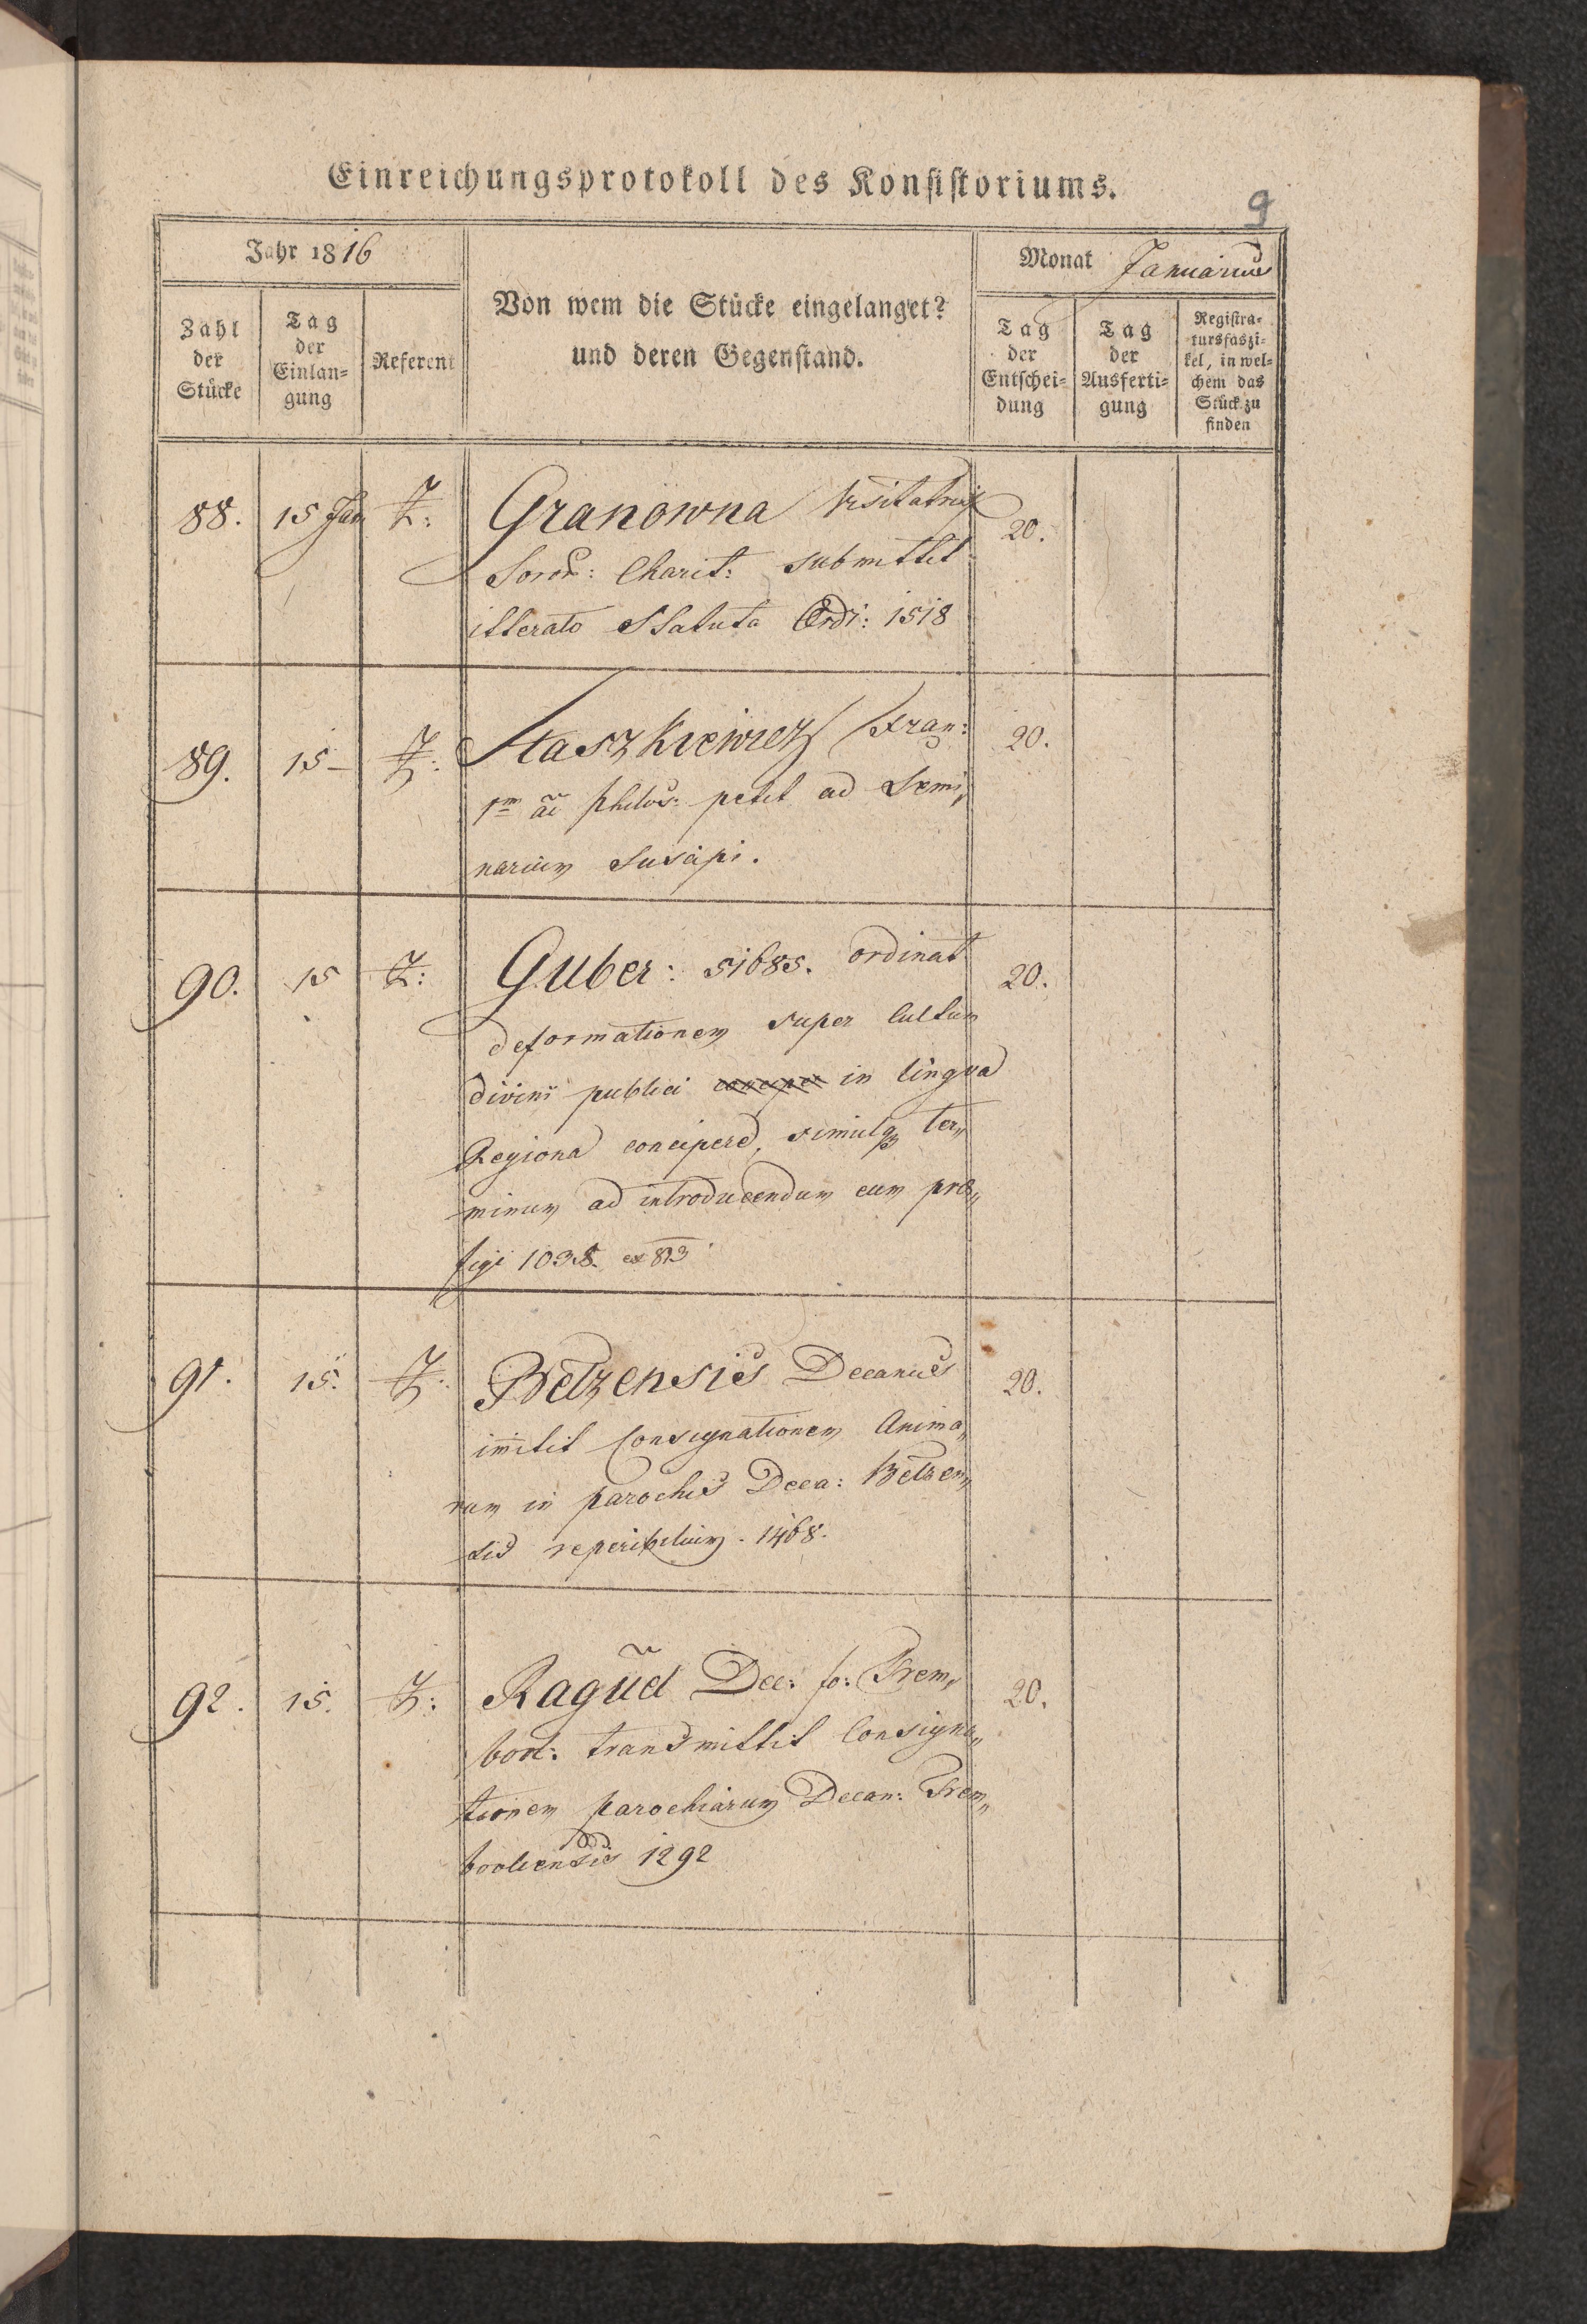 Einreichungsprotokoll des Konsistoriums.
9
Jahr 1816
Von wem die Stücke eingelanget?
und deren Gegenstand.
Monat Januarius
Zahl
der
Stücke
Tag
der
Einlan=
gung
Referent
Tag
der
Entschei=
dung
Tag
der
Ausferti=
gung
Registra=
tursfaszi=
kel, in wel=
chem das
Stück zu
finden
88. 15 Jan Z: Granowna Visitatrix 20.
Soror: Charit: submittit
itterato Statuta Ordi: 1518
89. 15 – Z: Staszkiewicz Fran: 20.
1m ai philos: petit ad Semi„
narium Suscipi.
90. 15 Z: Guber: 51685. ordinat 20.
deformationem super Cultum
divini publici in lingva
Regiona concipere, simulq ter„
minum ad introducendum eum prae„
figi 1038. ex 813
91. 15. Z: Belzensis Decanus 20.
imitit Consignationem Anima„
rum in parochis Deca: Belzen„
sis reperibilium. 1468.
92. 15. Z: Ragud Dec: fo: Trem„ 20.
bovl: transmittit Consigna„
tionem parochiarum Decan: Trem„
bovliensis 1292